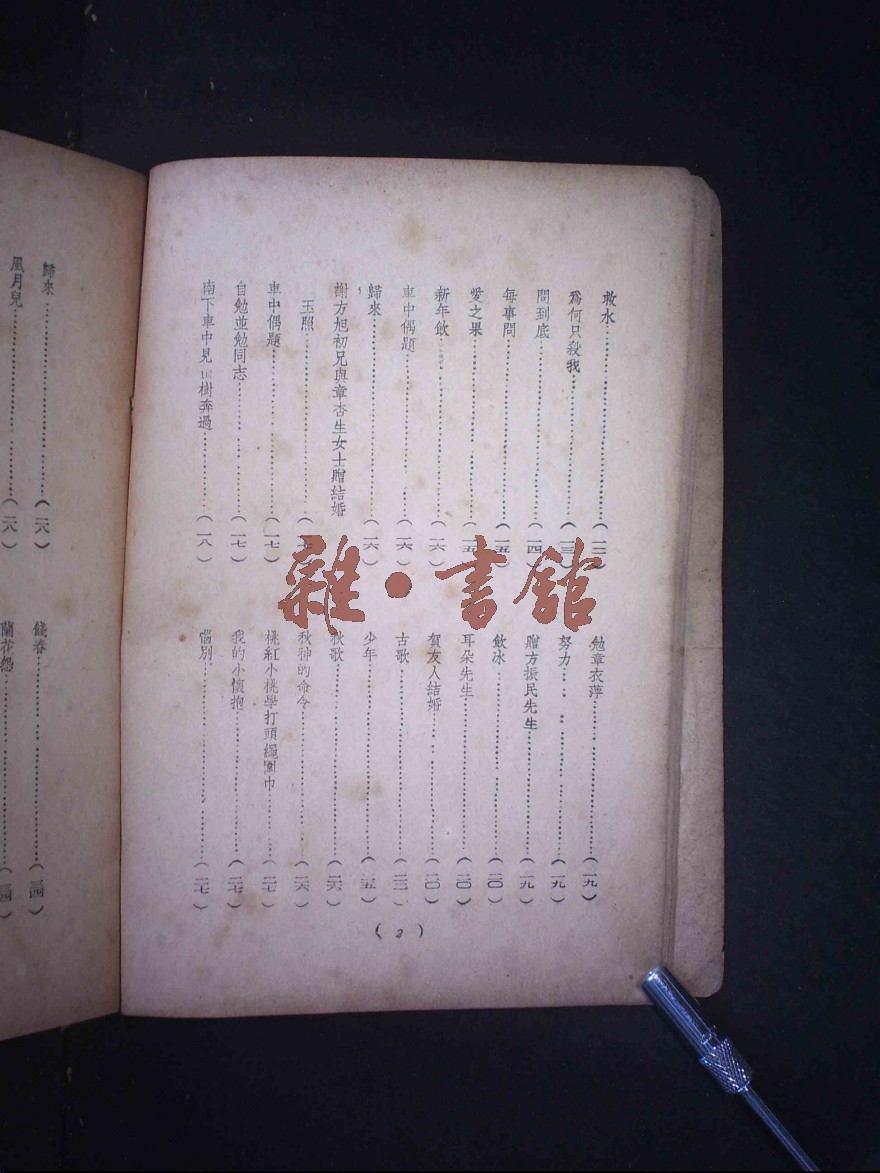 救水……（一二）
爲何只殺我……（一三）
問到底……（一四）
每事問……（一五）
愛之果……（一五）
新年飲……（一六）
車中偶題……（一六）
歸來……（一六）
謝方旭初兄與章杏生女士贈結婚
玉照……
車中偶題……（一七）
自勉並勉同志……（一七）
南下車中見山樹奔過……（一八）
勉章衣萍……（一九）
努力……（一九）
贈方振民先生……（一九）
飲冰……（二〇）
耳朵先生……（二〇）
賀友人結婚……（二〇）
古歌……（二二）
少年……（二五）
秋歌……（二六）
秋神的命令……（二六）
桃紅小桃學打頭繩圍巾……（二七）
我的小懷抱……（二七）
惱別……（二七）
（2）
歸來……（二八）
風月兒……（二八）
餞春……（三四）
蘭花怨……（三四）
雜·書館